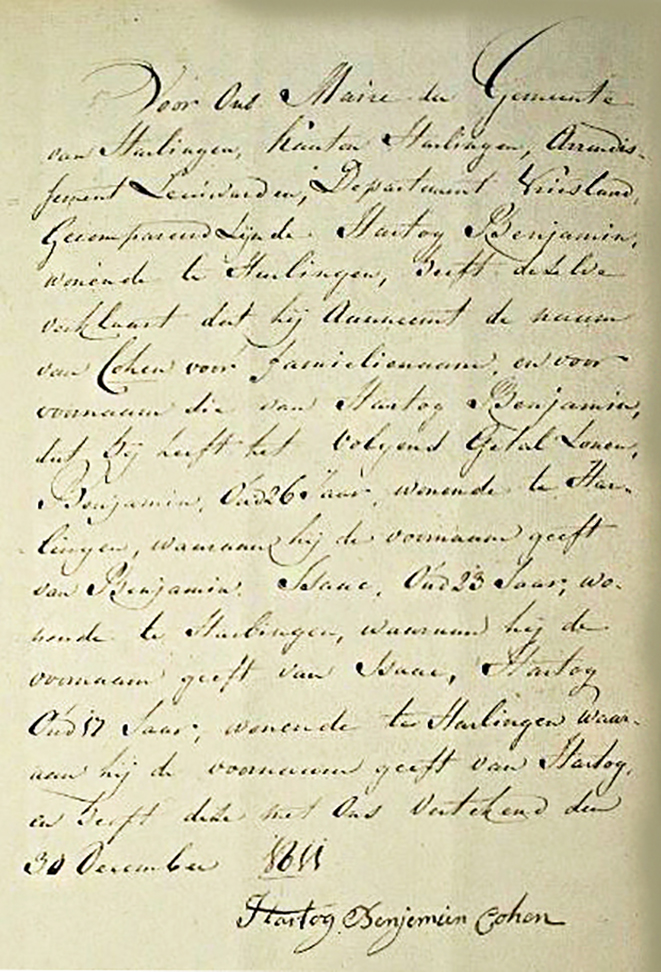 Voor Ons Maire der Gemeente
van Harlingen, Kanton Harlingen, Arrondis-
sement Leeuwarden, Departement Vriesland,
Gecompareerd zijnde Hartog Benjamin,
wonende te Harlingen, heeft dezelve
verklaart dat hij Aanneemt de naam
van Cohen voor familienaam, en voor
voornaam die van Hartog Benjamin,
dat hij heeft het volgend Getal Zonen,
Benjamin, Oud 26 Jaar, wonende te Har-
lingen, waaraan hij de voornaam geeft
van Benjamin. Isaac, Oud 23 Jaar, wo-
nende te Harlingen, waaraan hij de
voornaam geeft van Isaac, Hartog
Oud 17 Jaar, wonende te Harlingen waar-
aan hij de voornaam geeft van Hartog,
en heeft deze met Ons Vertekend den
30 December 1811
Hartog Benjemien Cohen